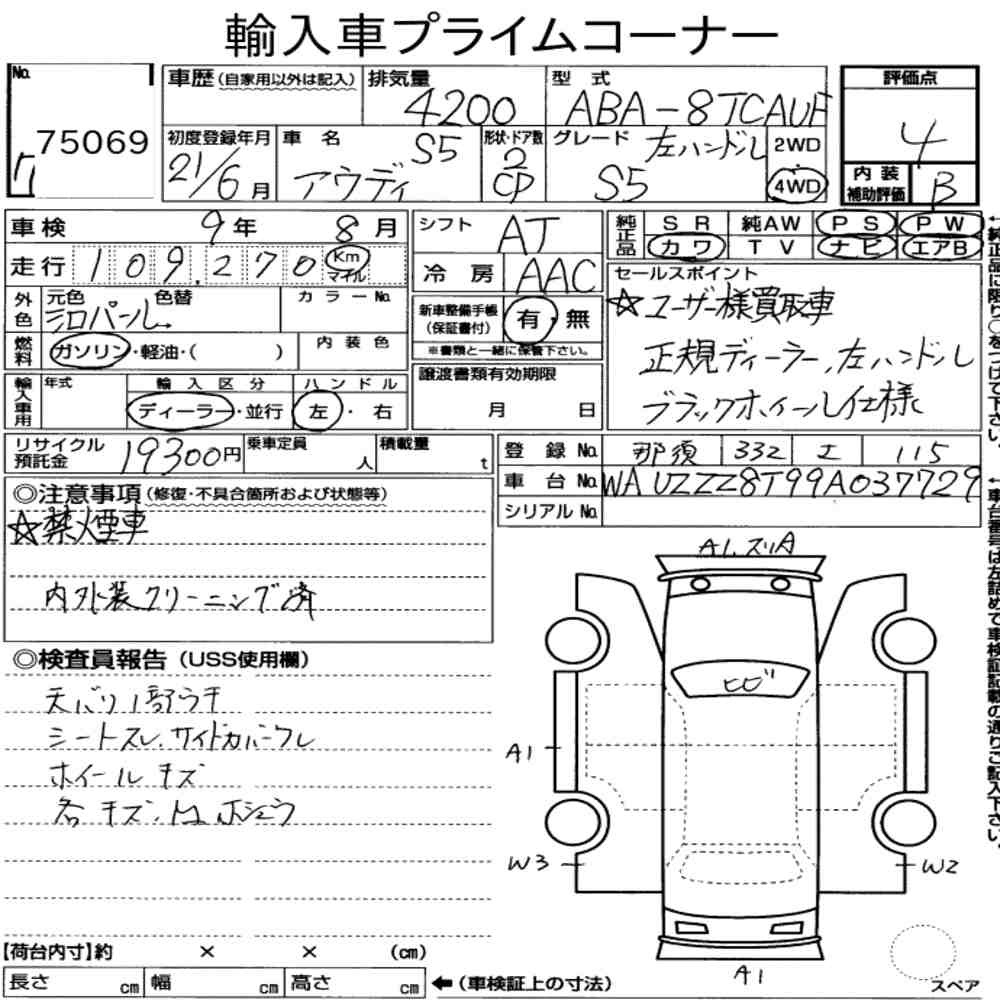 輸入車プライムコーナー
No. 75069
車歴(自家用以外は記入)
排気量 4200
型式 ABA-8TCAUF
評価点 4
初度登録年月 21/6月
車名 アウディ S5
形状・ドア数 2 CP
グレード 左ハンドル S5
2WD
4WD
内装補助評価 B
車検 9年 8月
シフト AT
純正品 SR 純AW PS PW
カワ TV ナビ エアB
走行 109,270 Km マイル
冷房 AAC
セールスポイント
☆ユーザー様買取車
正規ディーラー、左ハンドル
ブラックホイール仕様
外色 元色 色替 カラーNo.
シロパール
新車整備手帳(保証書付) 有・無
※書類と一緒に保管下さい。
燃料 ガソリン・軽油・( ) 内装色
譲渡書類有効期限
月 日
輸入車用 年式 輸入区分 ハンドル
ディーラー・並行 左・右
リサイクル預託金 19300円
乗車定員 人
積載量 t
登録No. 那須 332 115
車台No. WAUZZZ8T99A037729
シリアルNo.
◎注意事項(修復・不具合箇所および状態等)
☆禁煙車
内外装クリーニング済
◎検査員報告(USS使用欄)
天バリ1部ウキ
シートスレ、サイドカバークレ
ホイールキズ
各キズ、
A1、スリA
ヒビ
A1
W3
W2
A1
スペア
【荷台内寸】約 × × (cm)
長さ cm 幅 cm 高さ cm ←(車検証上の寸法)
↑純正品に限り○をつけて下さい。
↑車台番号は左詰めで車検証記載の通りご記入下さい。